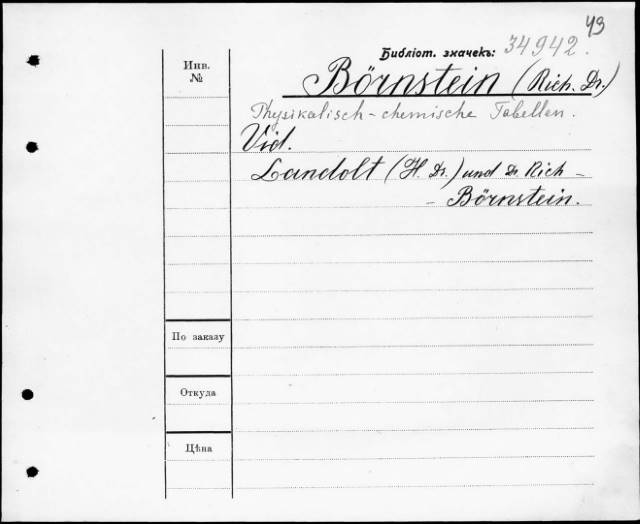 43
Библіот. значекъ: 34942.
Инв.
№
Börnstein (Rich. Dr.)
Physikalisch-chemische Tabellen.
Vid.
Landolt (H. Dr.) und Dr. Rich-
- Börnstein.
По заказу
Откуда
Цѣна